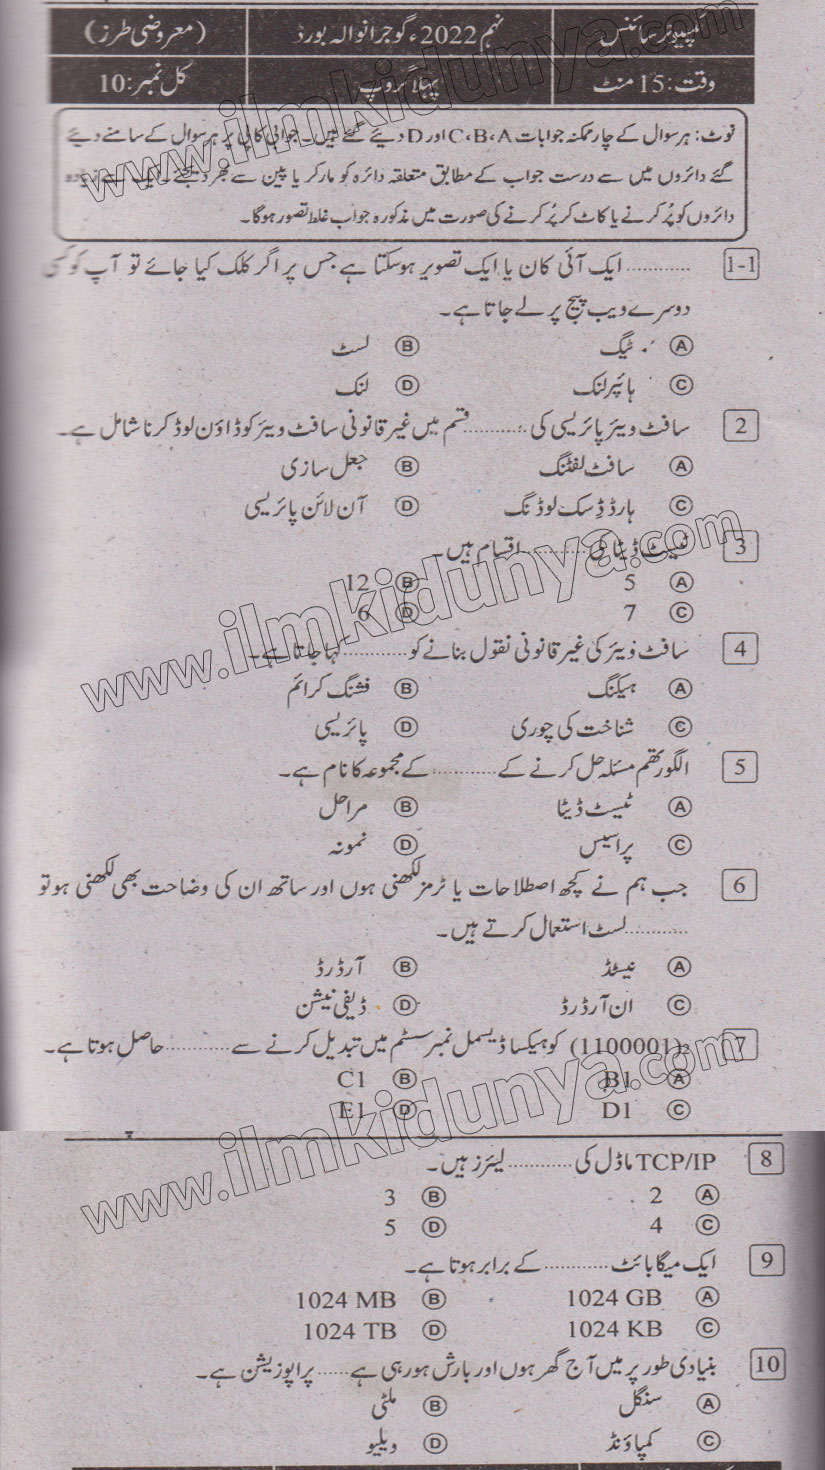 کمپیوٹر سائنس نہم 2022ء، گوجرانوالہ بورڈ (معروضی طرز)
وقت: 15 منٹ پہلا گروپ کل نمبر: 10
نوٹ: ہر سوال کے چار ممکنہ جوابات C،B،A اور D دیئے گئے ہیں۔ جوابی کاپی پر ہر سوال کے سامنے دیئے
گئے دائروں میں سے درست جواب کے مطابق متعلقہ دائرہ کو مارکر یا پین سے بھر دیجئے۔ ایک سے زیادہ
دائروں کو پُر کرنے یا کاٹ کر پُر کرنے کی صورت میں مذکورہ جواب غلط تصور ہوگا۔
1-1 ............ ایک آئی کان یا ایک تصویر ہو سکتا ہے جس پر اگر کلک کیا جائے تو آپ کو کسی
دوسرے ویب پیج پر لے جاتا ہے۔
A ٹیگ B لسٹ
C ہائپر لنک D لنک
2 سافٹ ویئر پائریسی کی ............ قسم میں غیر قانونی سافٹ ویئر کو ڈاؤن لوڈ کرنا شامل ہے۔
A سافٹ لفٹنگ B جعل سازی
C ہارڈ ڈسک لوڈنگ D آن لائن پائریسی
3 ٹیسٹ ڈیٹا کی ............ اقسام ہیں۔
A 5 B 12
C 7 D 6
4 سافٹ ویئر کی غیر قانونی نقول بنانے کو ............ کہا جاتا ہے۔
A ہیکنگ B فشنگ کرائم
C شناخت کی چوری D پائریسی
5 الگورتھم مسئلہ حل کرنے کے ............ کے مجموعہ کا نام ہے۔
A ٹیسٹ ڈیٹا B مراحل
C پراسیس D نمونہ
6 جب ہم نے کچھ اصطلاحات یا ٹرمز لکھنی ہوں اور ساتھ ان کی وضاحت بھی لکھنی ہو تو
............ لسٹ استعمال کرتے ہیں۔
A نیسٹڈ B آرڈرڈ
C ان آرڈرڈ D ڈیفی نیشن
7 (1100001)₂ کو ہیکسا ڈیسمل نمبر سسٹم میں تبدیل کرنے سے ............ حاصل ہوتا ہے۔
A B1 B C1
C D1 D E1
8 TCP/IP ماڈل کی ............ لیئرز ہیں۔
A 2 B 3
C 4 D 5
9 ایک میگا بائٹ ............ کے برابر ہوتا ہے۔
A 1024 GB B 1024 MB
C 1024 KB D 1024 TB
10 بنیادی طور پر میں آج گھر ہوں اور بارش ہو رہی ہے ...... پراپوزیشن ہے۔
A سنگل B ملٹی
C کمپاؤنڈ D ویلیو
www.ilmkidunya.com
www.ilmkidunya.com
www.ilmkidunya.com